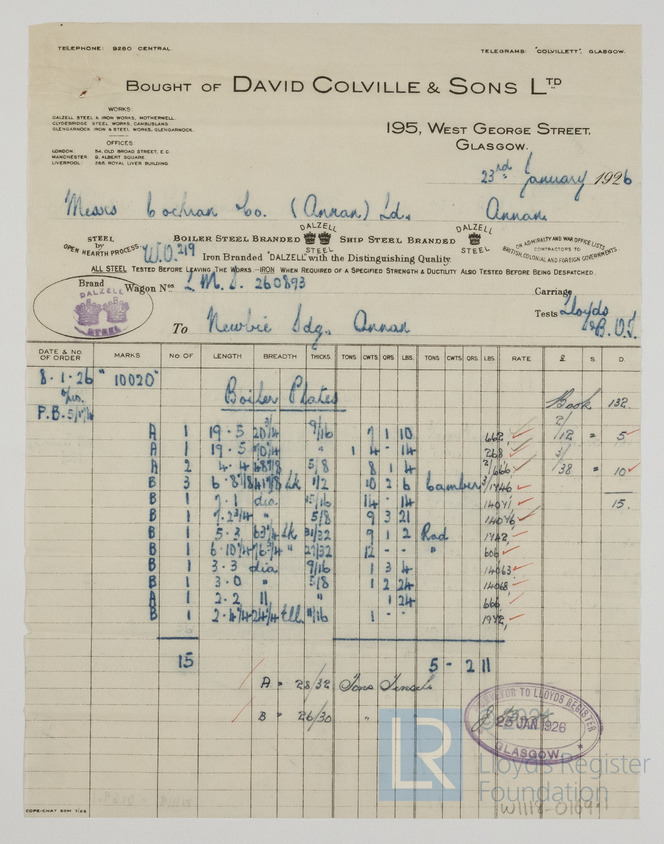 TELEPHONE: 9280 CENTRAL.
TELEGRAMS: "COLVILLETT", GLASGOW.
BOUGHT OF DAVID COLVILLE & SONS LTD
WORKS:
DALZELL STEEL & IRON WORKS, MOTHERWELL.
CLYDEBRIDGE STEEL WORKS, CAMBUSLANG
GLENGARNOCK IRON & STEEL WORKS, GLENGARNOCK.
OFFICES:
LONDON: 54, OLD BROAD STREET, E.C.
MANCHESTER: 9, ALBERT SQUARE
LIVERPOOL: 268 ROYAL LIVER BUILDING
195, WEST GEORGE STREET,
GLASGOW.
23rd January 1926
Messrs Cochran Co. (Annan) Ld. Annan.
STEEL by OPEN HEARTH PROCESS
W.O. 219
BOILER STEEL BRANDED DALZELL STEEL SHIP STEEL BRANDED DALZELL STEEL
Iron Branded "DALZELL" with the Distinguishing Quality.
ON ADMIRALTY AND WAR OFFICE LISTS
CONTRACTORS TO
BRITISH, COLONIAL AND FOREIGN GOVERNMENTS.
ALL STEEL TESTED BEFORE LEAVING THE WORKS.—IRON WHEN REQUIRED OF A SPECIFIED STRENGTH & DUCTILITY ALSO TESTED BEFORE BEING DESPATCHED.
Brand DALZELL STEEL
Wagon Nos. L M S. 260893
Carriage
Tests Lloyds & B.O.T.
To Newbie Sdg. Annan
DATE & No. OF ORDER MARKS No. OF LENGTH BREADTH THICKS. TONS CWTS. QRS. LBS. TONS CWTS. QRS. LBS. RATE £ S D.
8.1.26 "10020"
P.B.
Boiler Plates
Book 132.
A 1 19.5 9/16 7 1 10 662
/12 = 5
A 1 19.5 " 1 4 - 14 268
A 2 4.4 5/8 8 1 4 /666
/38 = 10
B 3 6.8 1/2 10 2 6 Camber
B 1 7.1 dia 15/16 14 - 14 14041
15.
B 1 7.2 3/4 " 5/8 9 3 21 14046
B 1 5.3 63 1/4 31/32 9 1 2 Rad 1742
B 1 6.10 " 27/32 12 - - " 606
B 1 3.3 dia 9/16 1 3 4 14063
B 1 3.0 " 5/8 1 2 24 14068
A 1 2.2 11 " 1 24 666
B 1 2.4 24 1/4 Ell 11/16 1 - - 1942
15
5 - 2 11
A = 28/32 Tons Tensile
B = 26/30 "
SURVEYOR TO LLOYDS REGISTER
25 JAN 1926
GLASGOW
LR
Lloyd's Register
Foundation
W1118-0109
COPE-CHAT